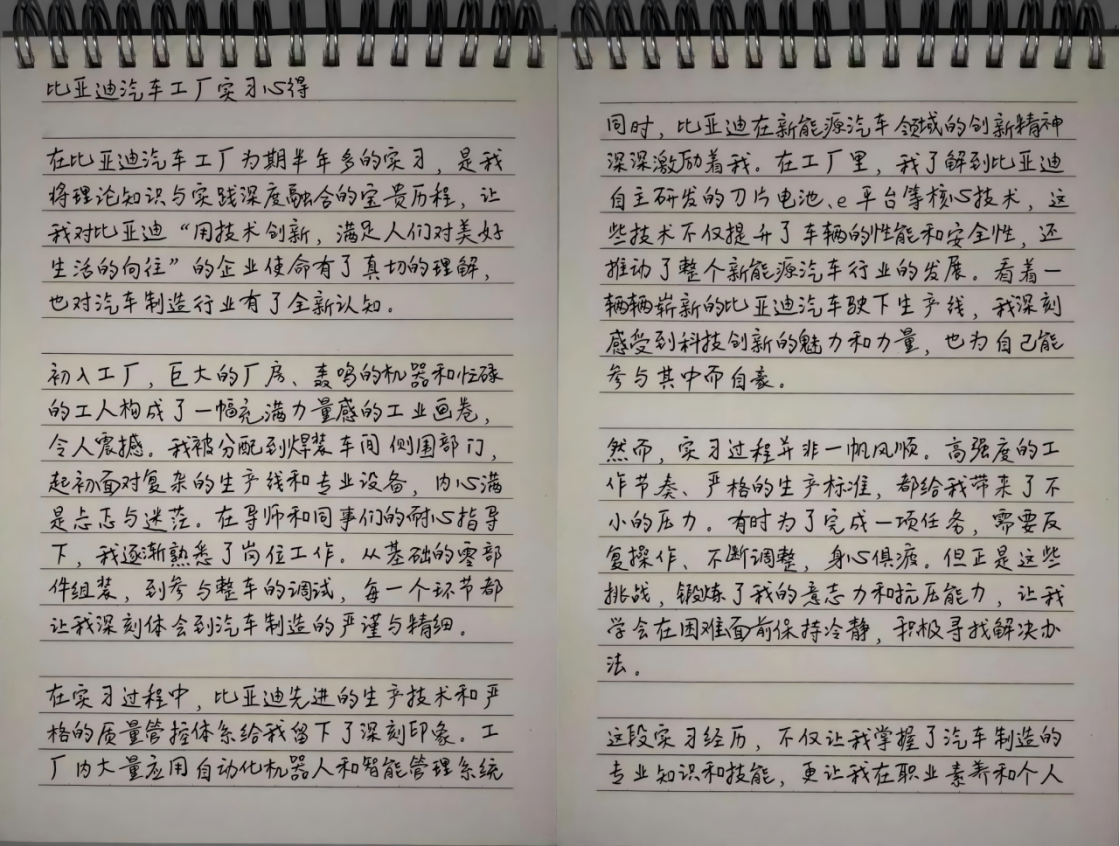 比亚迪汽车工厂实习心得
在比亚迪汽车工厂为期半年多的实习，是我
将理论知识与实践深度融合的宝贵历程，让
我对比亚迪“用技术创新，满足人们对美好
生活的向往”的企业使命有了真切的理解，
也对汽车制造行业有了全新认知。
初入工厂，巨大的厂房、轰鸣的机器和忙碌
的工人构成了一幅充满力量感的工业画卷，
令人震撼。我被分配到焊装车间侧围部门，
起初面对复杂的生产线和专业设备，内心满
是忐忑与迷茫。在导师和同事们的耐心指导
下，我逐渐熟悉了岗位工作。从基础的零部
件组装，到参与整车的调试，每一个环节都
让我深刻体会到汽车制造的严谨与精细。
在实习过程中，比亚迪先进的生产技术和严
格的质量管控体系给我留下了深刻印象。工
厂内大量应用自动化机器人和智能管理系统
同时，比亚迪在新能源汽车领域的创新精神
深深激励着我。在工厂里，我了解到比亚迪
自主研发的刀片电池、e平台等核心技术，这
些技术不仅提升了车辆的性能和安全性，还
推动了整个新能源汽车行业的发展。看着一
辆辆崭新的比亚迪汽车驶下生产线，我深刻
感受到科技创新的魅力和力量，也为自己能
参与其中而自豪。
然而，实习过程并非一帆风顺。高强度的工
作节奏、严格的生产标准，都给我带来了不
小的压力。有时为了完成一项任务，需要反
复操作、不断调整，身心俱疲。但正是这些
挑战，锻炼了我的意志力和抗压能力，让我
学会在困难面前保持冷静，积极寻找解决办
法。
这段实习经历，不仅让我掌握了汽车制造的
专业知识和技能，更让我在职业素养和个人